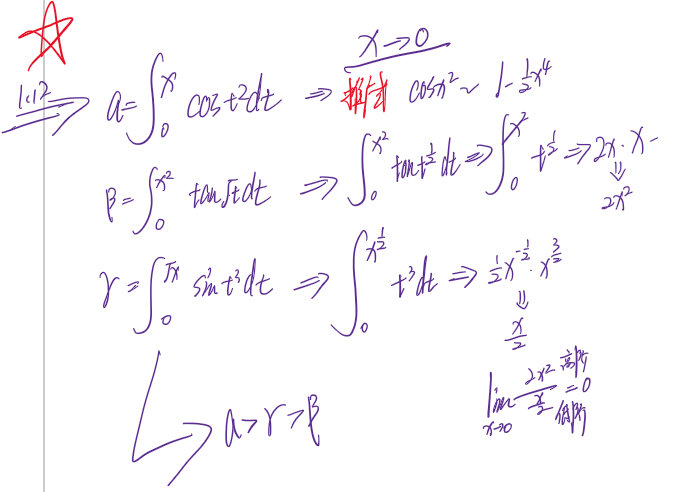 x→0
1.12 ⇒ a = ∫₀ˣ cos t² dt ⇒ cosx² ~ 1 - 1/2 x⁴
β = ∫₀^{x²} tan √t dt ⇒ ∫₀^{x²} tan t^{1/2} dt ⇒ ∫₀^{x²} t^{1/2} ⇒ 2x · x -
⇓
2x²
γ = ∫₀^{√x} sin t³ dt ⇒ ∫₀^{x^{1/2}} t³ dt ⇒ 1/2 x^{-1/2} · x^{3/2}
⇓
x/2
lim_{x→0} 2x² / (x/2) = 0 高阶 低阶
a > γ > β